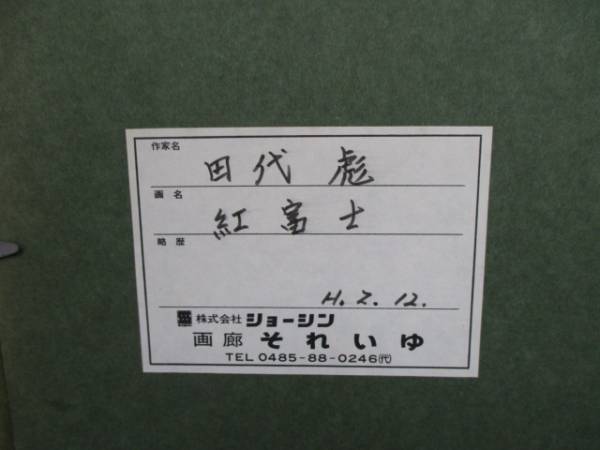 作家名
田代 彪
画名
紅富士
略歴
H.2.12.
株式会社 ジョーシン
画廊 それいゆ
TEL 0485-88-0246(代)